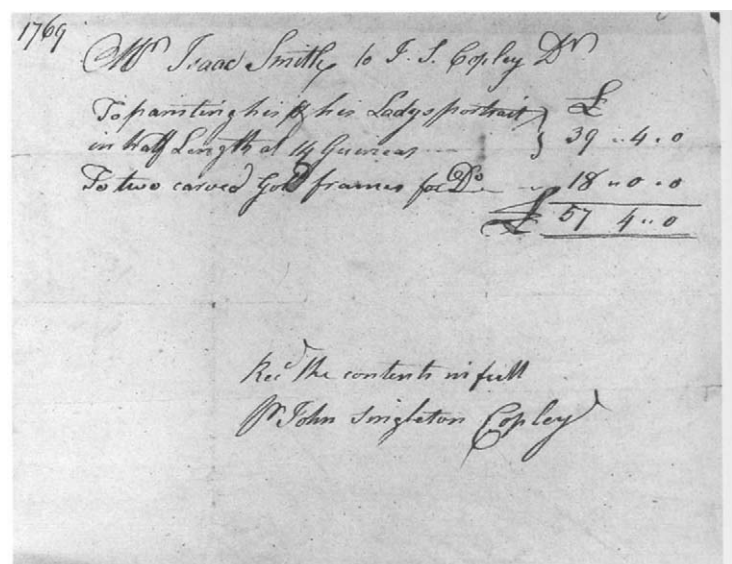 1769
Mr. Isaac Smith, to J. S. Copley Dr.
To painting his & his Ladys portrait } £
in half Length at 14 Guineas - - } 39 .. 4 .. 0
To two carved Gold frames for Do. .. 18 .. 0 .. 0
£ 57 4 .. 0
Recd. the contents in full
Pr John Singleton Copley